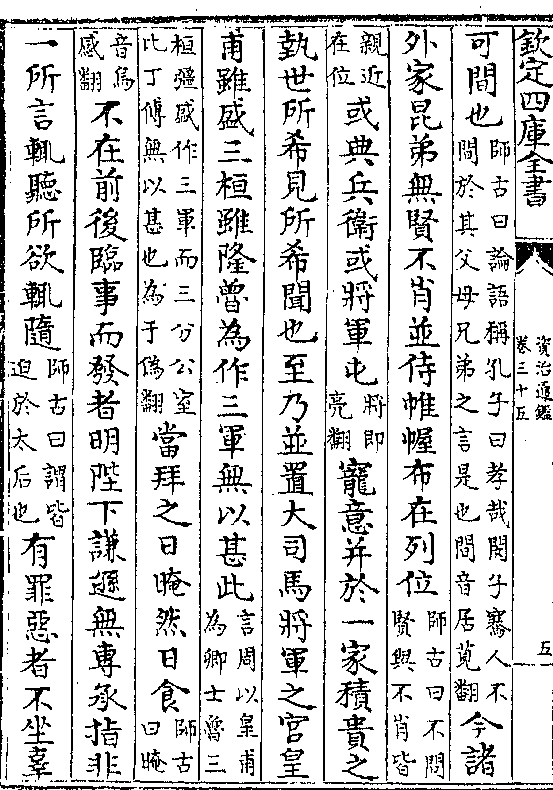 欽定四庫全書
資治通鑑
卷三十五
五
可間也師古曰論語稱孔子曰孝哉閔子騫人不間於其父母兄弟之言是也間音居莧翻今諸
外家昆弟無賢不肖並侍帷幄布在列位師古曰不問賢與不肖皆
親近在位或典兵衛或將軍屯將即亮翻寵意并於一家積貴之
埶世所希見所希聞也至乃並置大司馬將軍之官皇
甫雖盛三桓雖隆魯為作三軍無以甚此言周以皇甫為卿士魯三
桓彊盛作三軍而三分公室比丁傅無以甚也為于偽翻當拜之日晻然日食師古曰晻
音烏感翻不在前後臨事而發者明陛下謙遜無專承指非
一所言輒聽所欲輒隨師古曰謂皆迫於太后也有罪惡者不坐辜